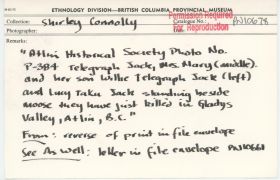 ETHNOLOGY DIVISION—BRITISH COLUMBIA PROVINCIAL MUSEUM
Collector: Shirley Connolly
Catalogue No.: PN10678
Permission Required
For Reproduction
Photographer:
Remarks:
"Atlin Historical Society Photo No.
P-384 Telegraph Jack, Mrs. Mary (middle).
and her son Willie Telegraph Jack (left)
and Lucy Taku Jack standing beside
moose they have just killed in Gladys
Valley, Atlin, B.C."
From: reverse of print in file envelope
See As Well: letter in file envelope PN10661